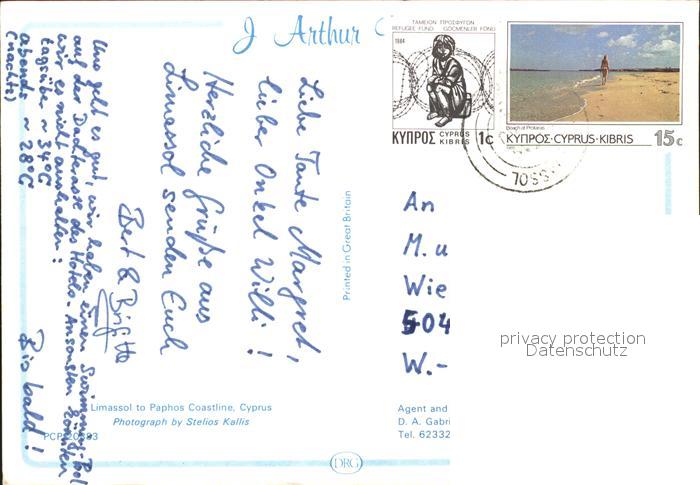 J Arthur
ΤΑΜΕΙΟΝ ΠΡΟΣΦΥΓΩΝ
REFUGEE FUND GÖÇMENLER FONU
1984
ΚΥΠΡΟΣ CYPRUS KIBRIS 1c
Beach at Protaras
ΚΥΠΡΟΣ·CYPRUS·KIBRIS 15c
SSOL
Liebe Tante Margret,
lieber Onkel Willi!
Herzliche Grüße aus
Limassol senden Euch
Bert & Brigitte
Uns geht es gut, wir haben einen Swimming-Pool
auf der Dachterasse des Hotels. Ansonsten könnten
wir es nicht aushalten:
tagsüber ~ 34°C
abends ~ 28°C
(nachts)
Bis bald!
Printed in Great Britain
An
M. u
Wie
504
W.-
privacy protection
Datenschutz
Limassol to Paphos Coastline, Cyprus
Photograph by Stelios Kallis
Agent and
D. A. Gabri
Tel. 62332
DRG